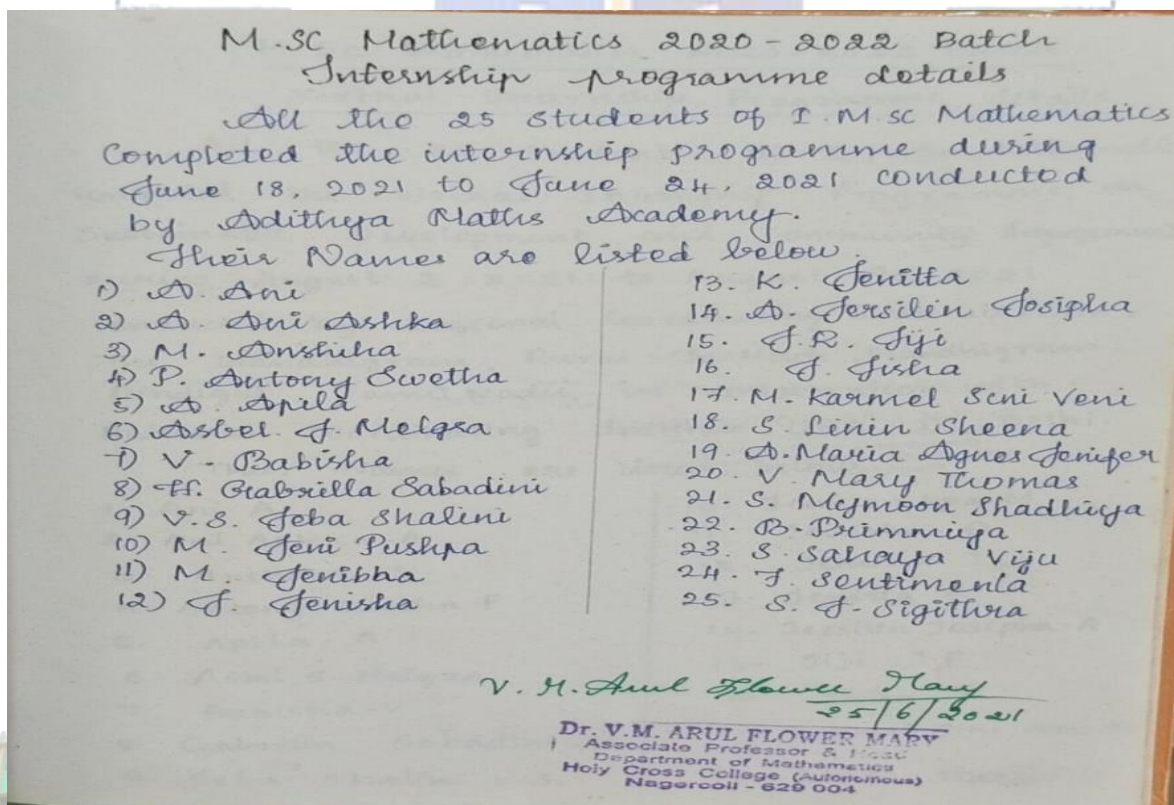 M.SC Mathematics 2020-2022 Batch
Internship programme details
All the 25 students of I.M.sc Mathematics
Completed the internship programme during
June 18, 2021 to June 24, 2021 conducted
by Adithya Maths Academy.
Their Names are listed below.
1) A. Ani
2) A. Ani Ashka
3) M. Anshiha
4) P. Antony Swetha
5) A. Apila
6) Asbel. J. Melgra
7) V. Babisha
8) H. Gabrilla Sabadini
9) V.S. Jeba Shalini
10) M. Jeni Pushpa
11) M. Jenibha
12) J. Jenisha
13. K. Jenitta
14. A. Jersilin Josipha
15. J.R. Jiji
16. J. Jisha
17. M. Karmel Seni Veni
18. S. Linin Sheena
19. A. Maria Agnes Jenifer
20. V. Mary Thomas
21. S. Mejmoon Shadhiya
22. B. Primmiya
23. S. Sahaya Viju
24. J. Sentimenla
25. S. J. Sigithra
V. M. Arul Flower Mary
25/6/2021
Dr. V.M. ARUL FLOWER MARY
Associate Professor & Head
Department of Mathematics
Holy Cross College (Autonomous)
Nagercoil - 629 004